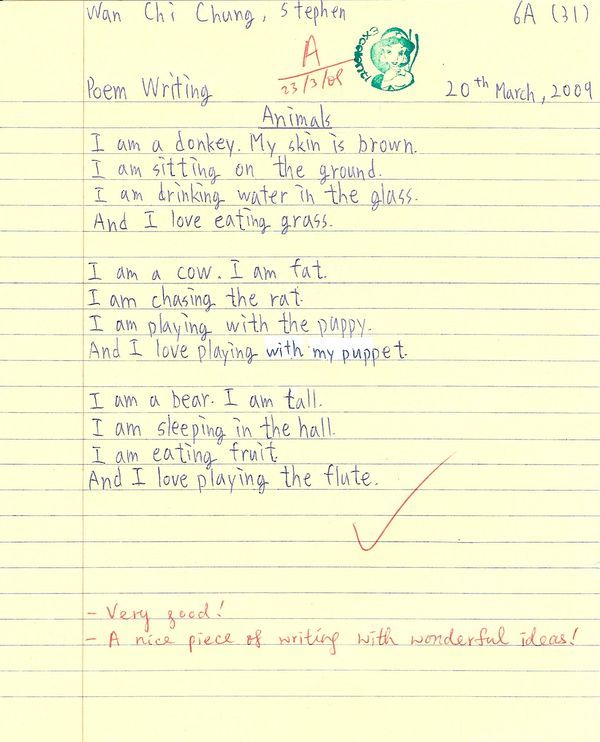 Wan Chi Chung, Stephen 6A (31)
A
EXCELLENT
23/3/09
Poem Writing 20th March, 2009
Animals
I am a donkey. My skin is brown.
I am sitting on the ground.
I am drinking water in the glass.
And I love eating grass.
I am a cow. I am fat.
I am chasing the rat.
I am playing with the puppy.
And I love playing with my puppet.
I am a bear. I am tall.
I am sleeping in the hall.
I am eating fruit
And I love playing the flute.
- Very good!
- A nice piece of writing with wonderful ideas!